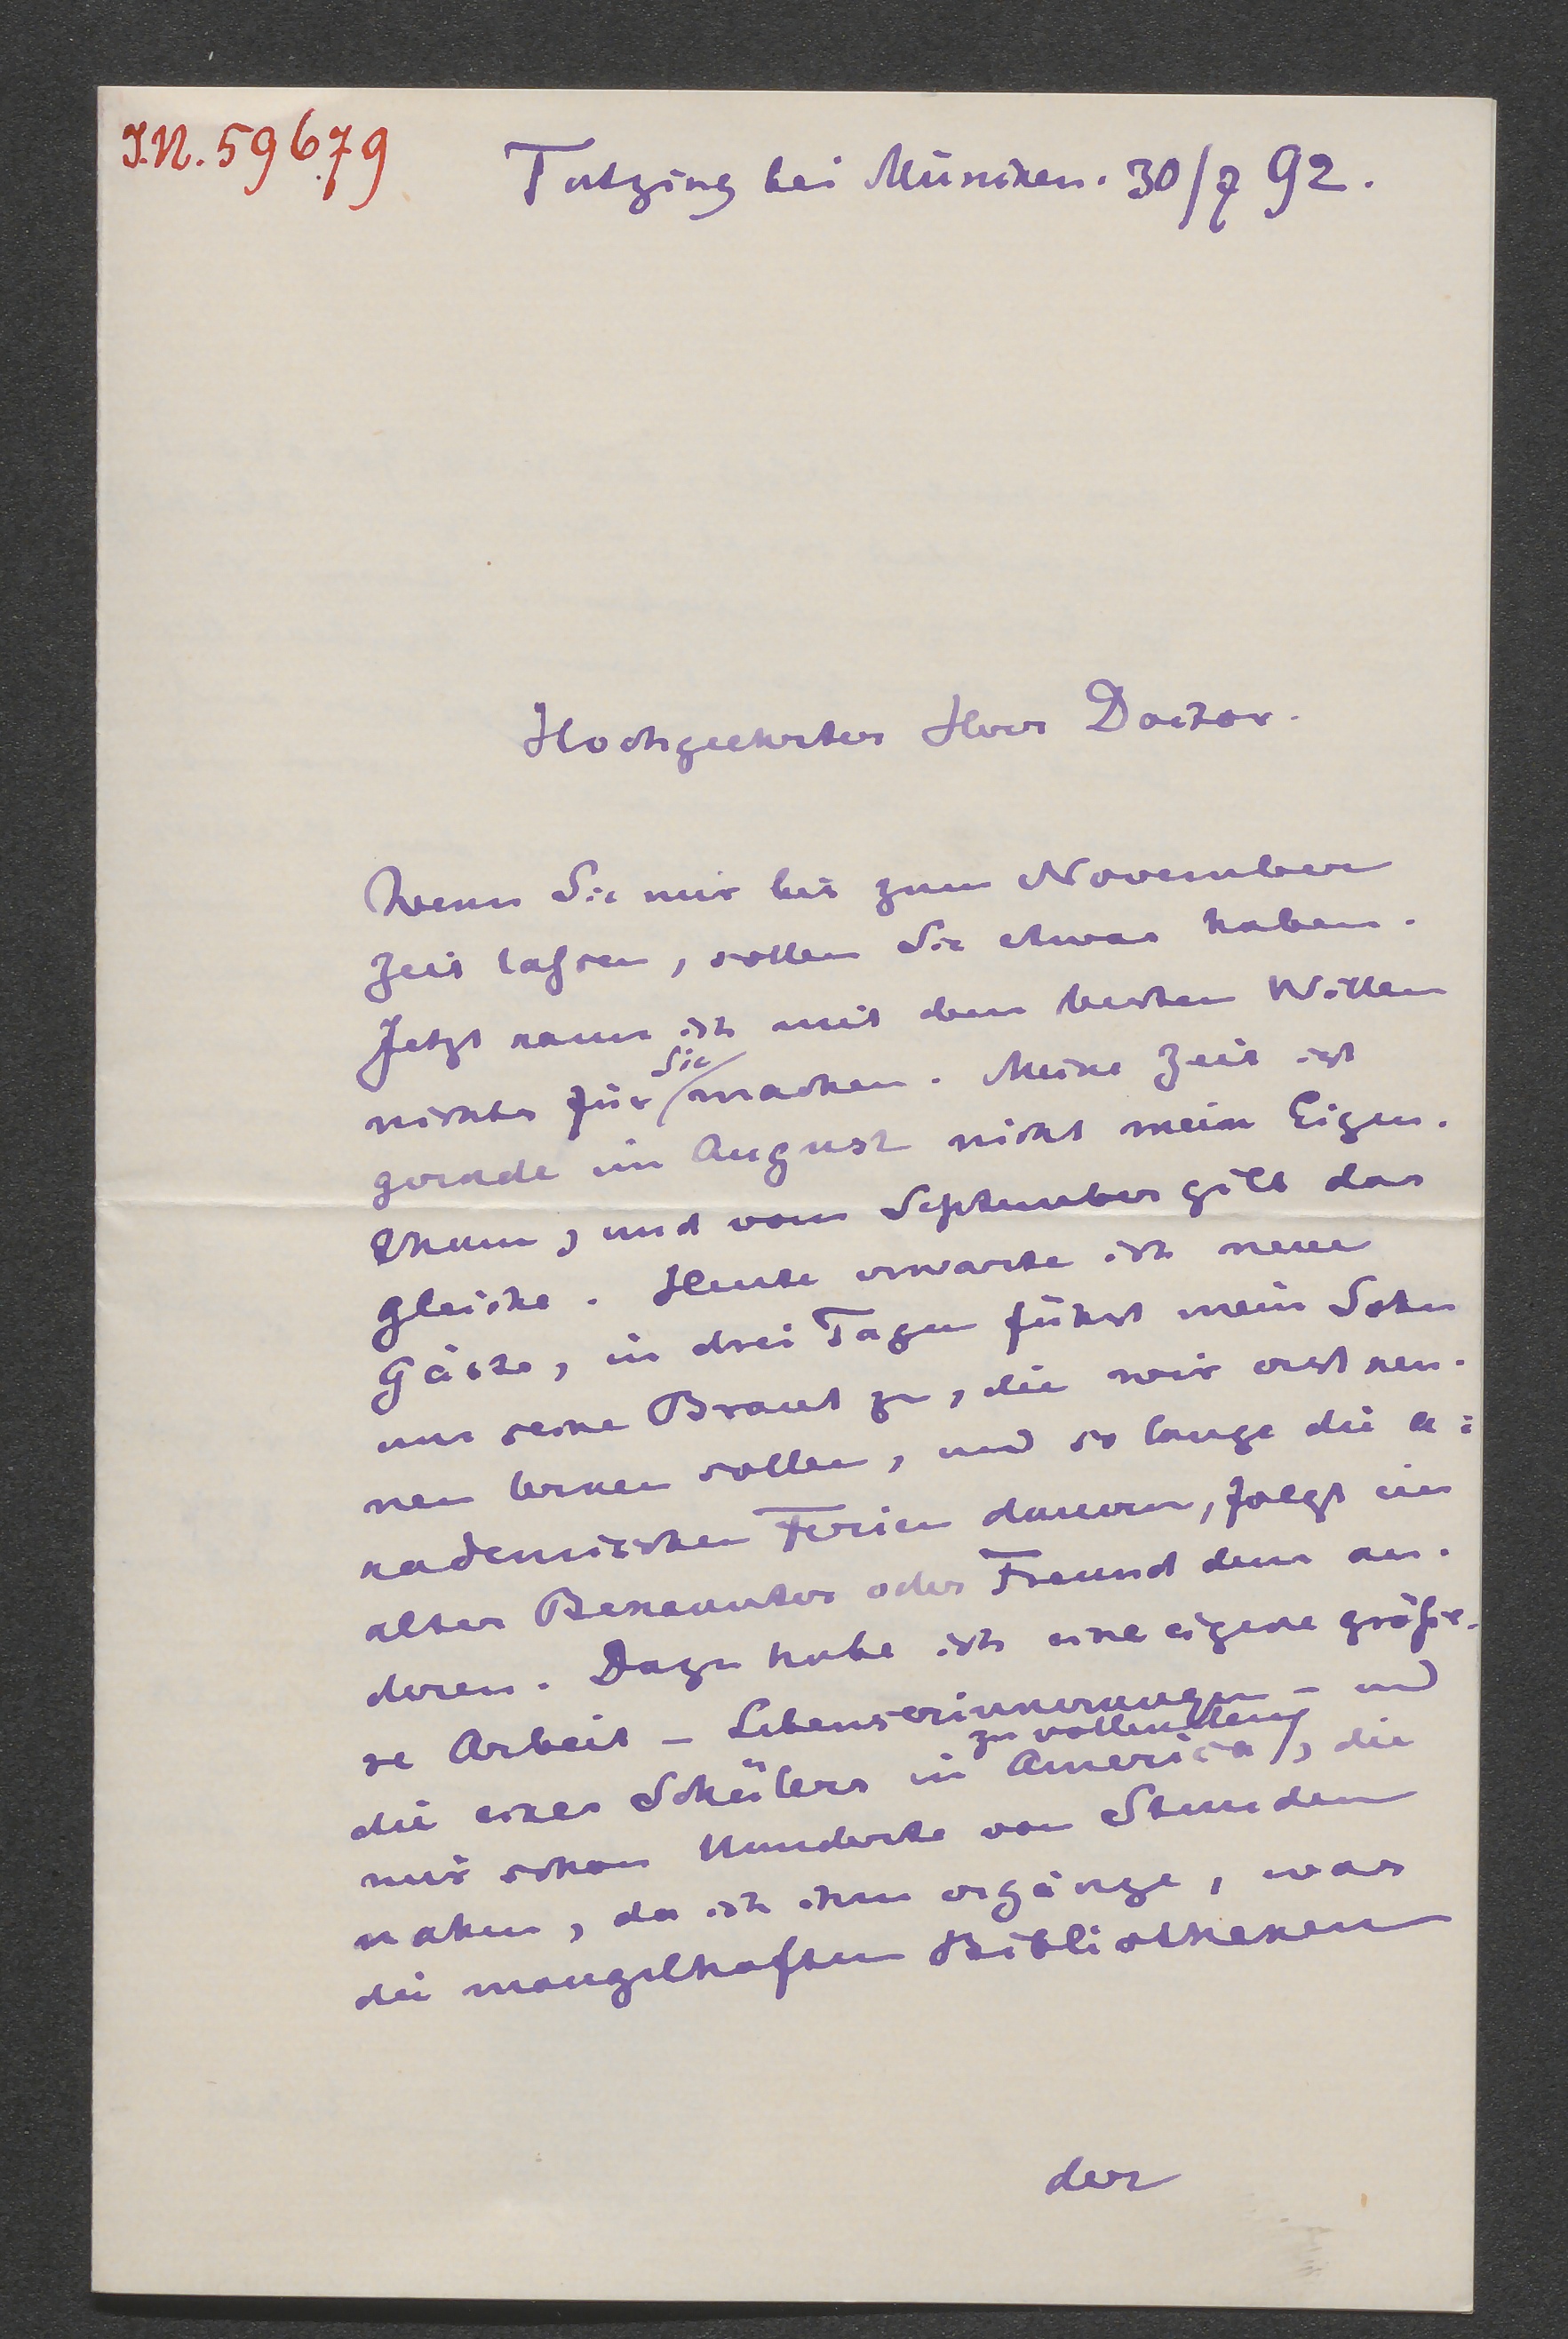 I.N. 59679
Tutzing bei München. 30/7 92.
Hochgeehrter Herr Doctor.
Wenn Sie mir bis zum November
Zeit laßen, sollen Sie etwas haben.
Jetzt kann ich mit dem besten Willen
nichts für Sie machen. Meine Zeit ist
gerade im August nicht mein Eigen-
thum, und vom September gilt das
gleiche. Heute erwarte ich neue
Gäste, in drei Tagen führt mein Sohn
uns seine Braut zu, die wir erst ken-
nen lernen sollen, und so lange die a=
kademischen Ferien dauern, folgt ein
alter Bekannter oder Freund dem an-
deren. Dazu habe ich eine eigene größe-
re Arbeit – Lebenserinnerungen – und
die eines Schülers in America zu vollenden, die
mir schon Hunderte von Stunden
nahm, da ich ihm ergänze, was
die mangelhaften Bibliotheken
der